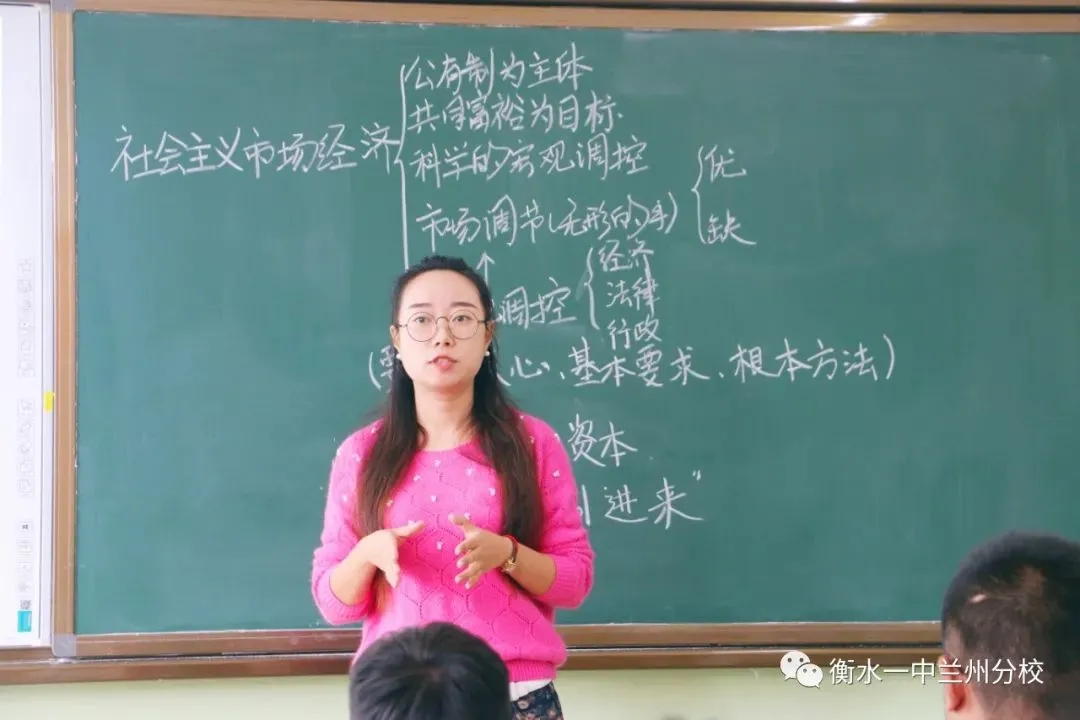 公有制为主体
共同富裕为目标
社会主义市场经济
科学的宏观调控
市场调节(无形的手)
优
缺
调控
经济
法律
行政
心、基本要求、根本方法)
资本
引进来"
衡水一中兰州分校